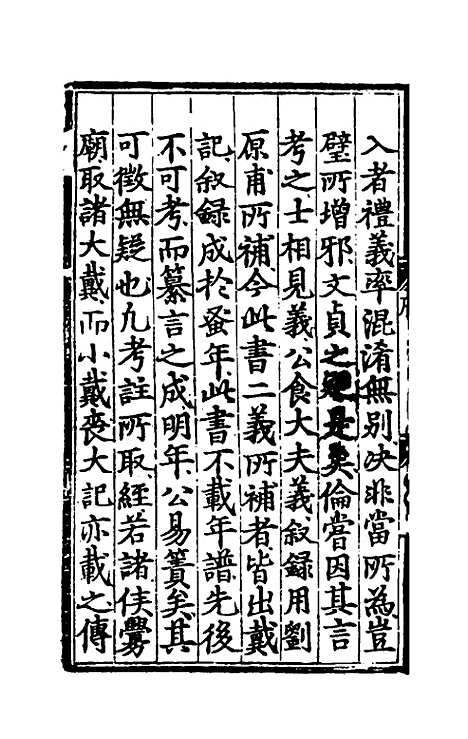 入者禮義率混淆無別决非當所為豈
璧所增邪文貞之是矣倫嘗因其言
考之士相見義公食大夫義叙錄用劉
原甫所補今此書二義所補者皆出戴
記叙録成扵蚤年此書不載年譜先後
不可考而纂言之成明年公易簀矣其
可徵無疑也九考註所取經若諸侯釁
廟取諸大戴而小戴喪大記亦載之傳